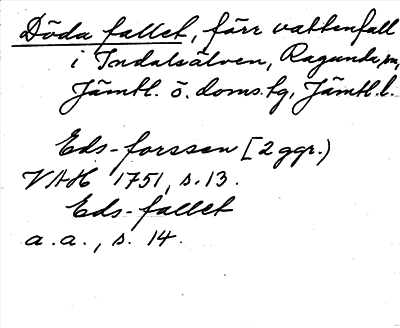 Döda fallet, förr vattenfall
i Indalsälven, Ragunda sn,
Jämtl. ö. doms.hg, Jämtl. l.
Eds-forssen [2 ggr.)
VAH 1751, s. 13.
Eds-fallet
a.a., s. 14.